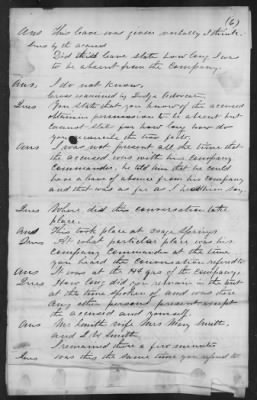 (6)
Ans This leave was given verbally I think.
Ques by the accused
Did leave state how long I was
to be absent from the Company.
Ans. I do not know.
Cross examined by Judge Advocate
Ques You state that you know of the accused
obtaining permission to be absent but
cannot state for how long how do
you reconcile the two facts.
Ans I was not present all the time that
the accused was with his company
Commander, he told him that he could
have a leave of absence from his company
and that was as far as I heard him say.
Ques Where did this conversation take
place.
Ans This took place at Springs
Ques At what particular place was his
company commander at the time
you heard the conversation refered to
Ans It was at the Hd Qrs of the company.
Ques How long did you remain in the tent
at the time spoken of and was there
any other persons present except
the accused and yourself.
Ans Mr Smith wife Mrs Mary Smith,
and Smith
I remained there a few minutes
Ques was this the same time you refered to